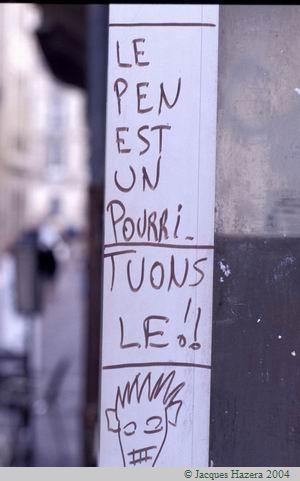 LE
PEN
EST
UN
POURRI_
TUONS
LE!!
© Jacques Hazera 2004